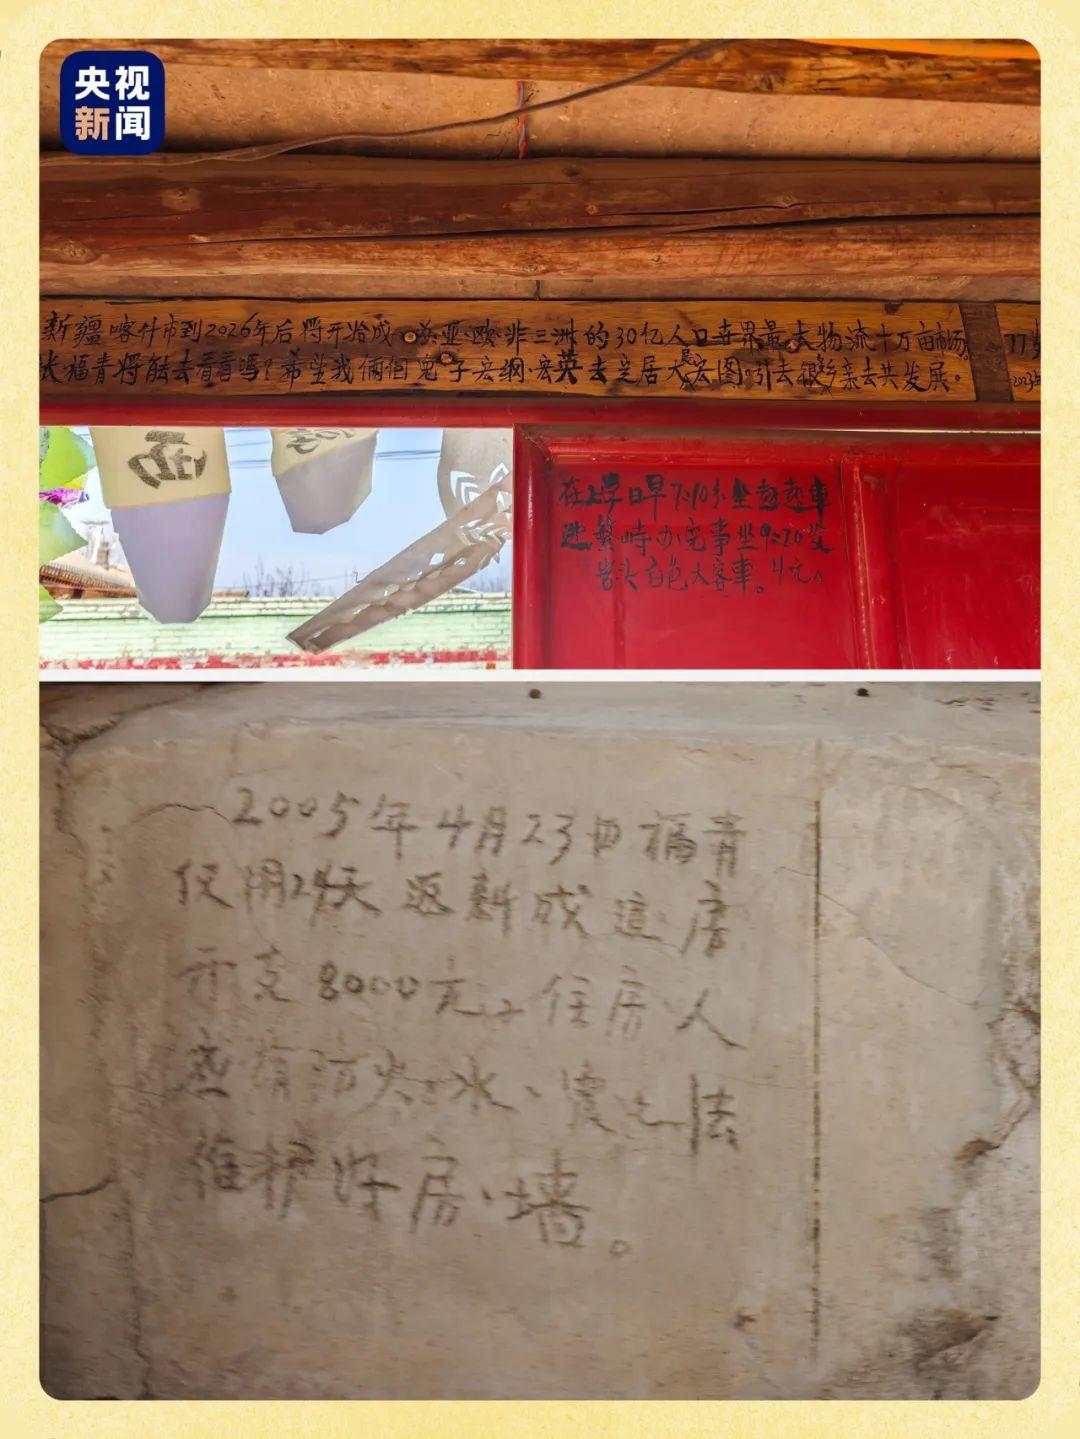 央视
新闻
新疆喀什市到2026年后将开始成 亚·欧·非三洲的30亿人口世界最大物流十万亩市场。
张福青将能去看看吗?希望我俩個兒子宏纲·宏英去定居大宏图。引去很多亲去共发展。
77
2023
在上早日早7:10分坐
繁峙办完事坐9:20
岩头白色大客車。4元。
2005年4月23日福青
仅用24天返新成這房
示支8000元。住房人
有防火、水、震之法
维护好房、墙。